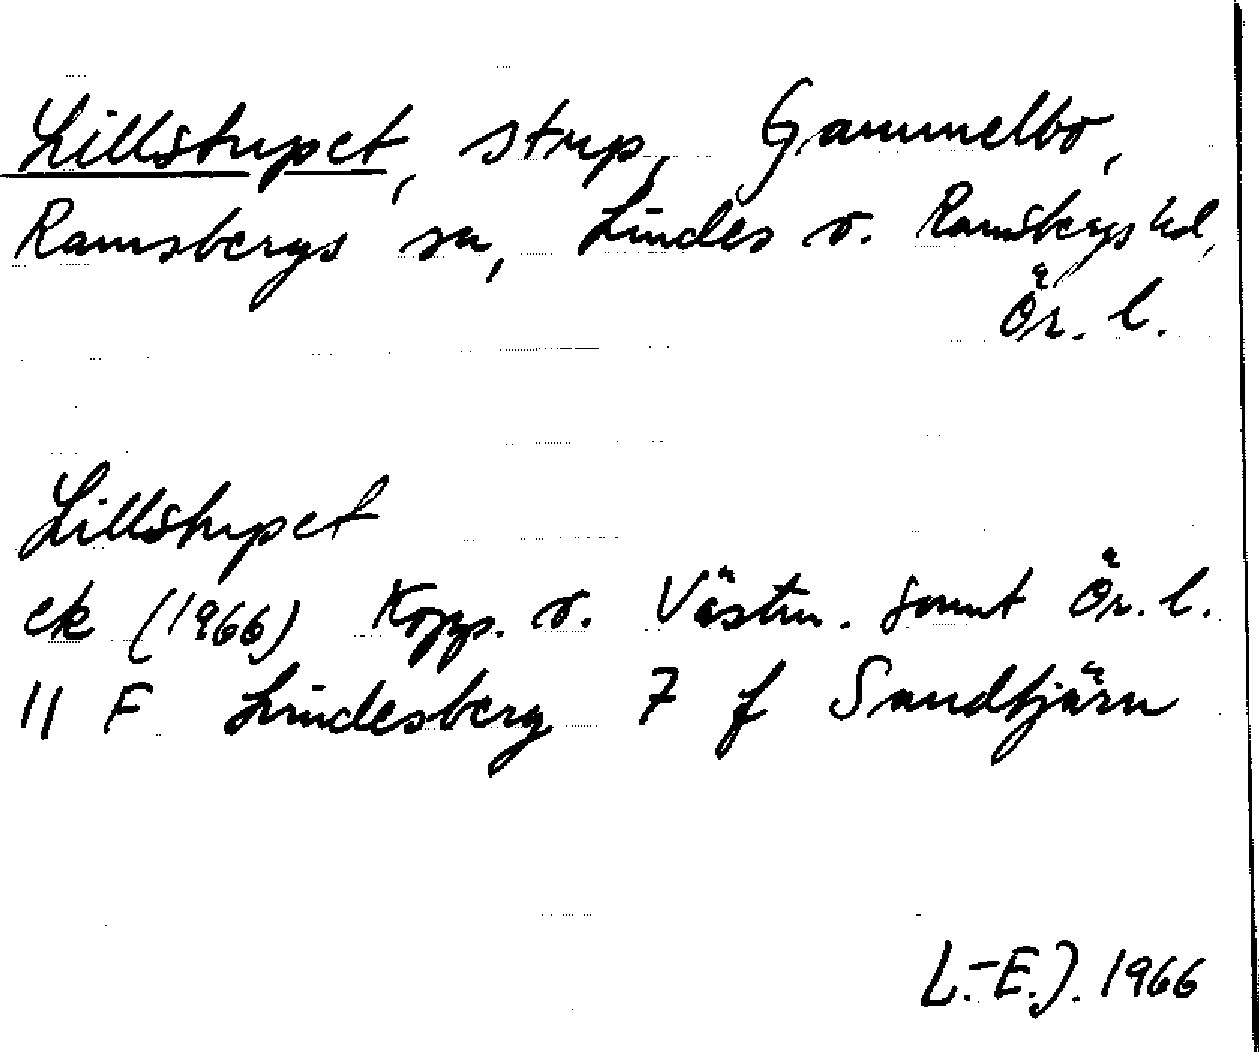 Lillstupet, stup, Gammelbo,
Ramsbergs sn, Lindes o. Ramsbergs hd,
Ör. l.
Lillstupet
ek (1966) Kopp. o. Västm. samt Ör. l.
11 F Lindesberg 7 f Sandtjärn
L.-E.J. 1966